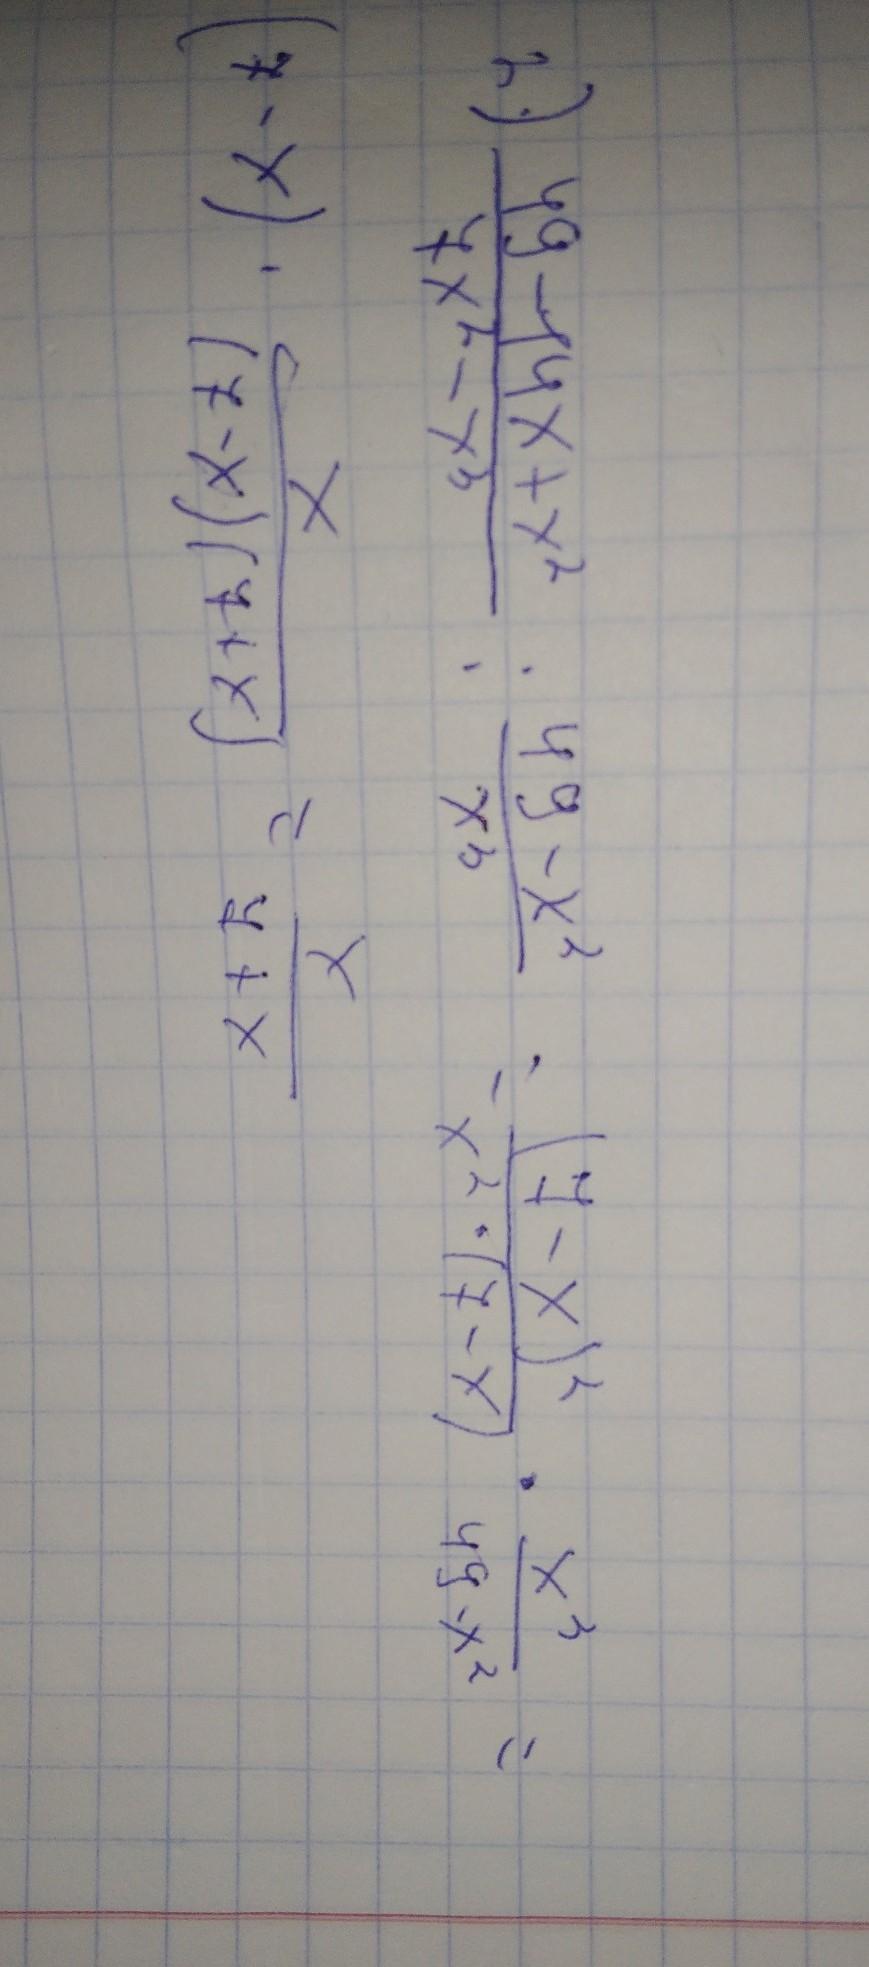 2) (49 - 14x + x²)/(7x² - x³) : (49 - x²)/x³ = (7 - x)²/(x² · (7 - x)) · x³/(49 - x²) =
(7 - x) · x/((7 - x)(7 + x)) = x/(7 + x)